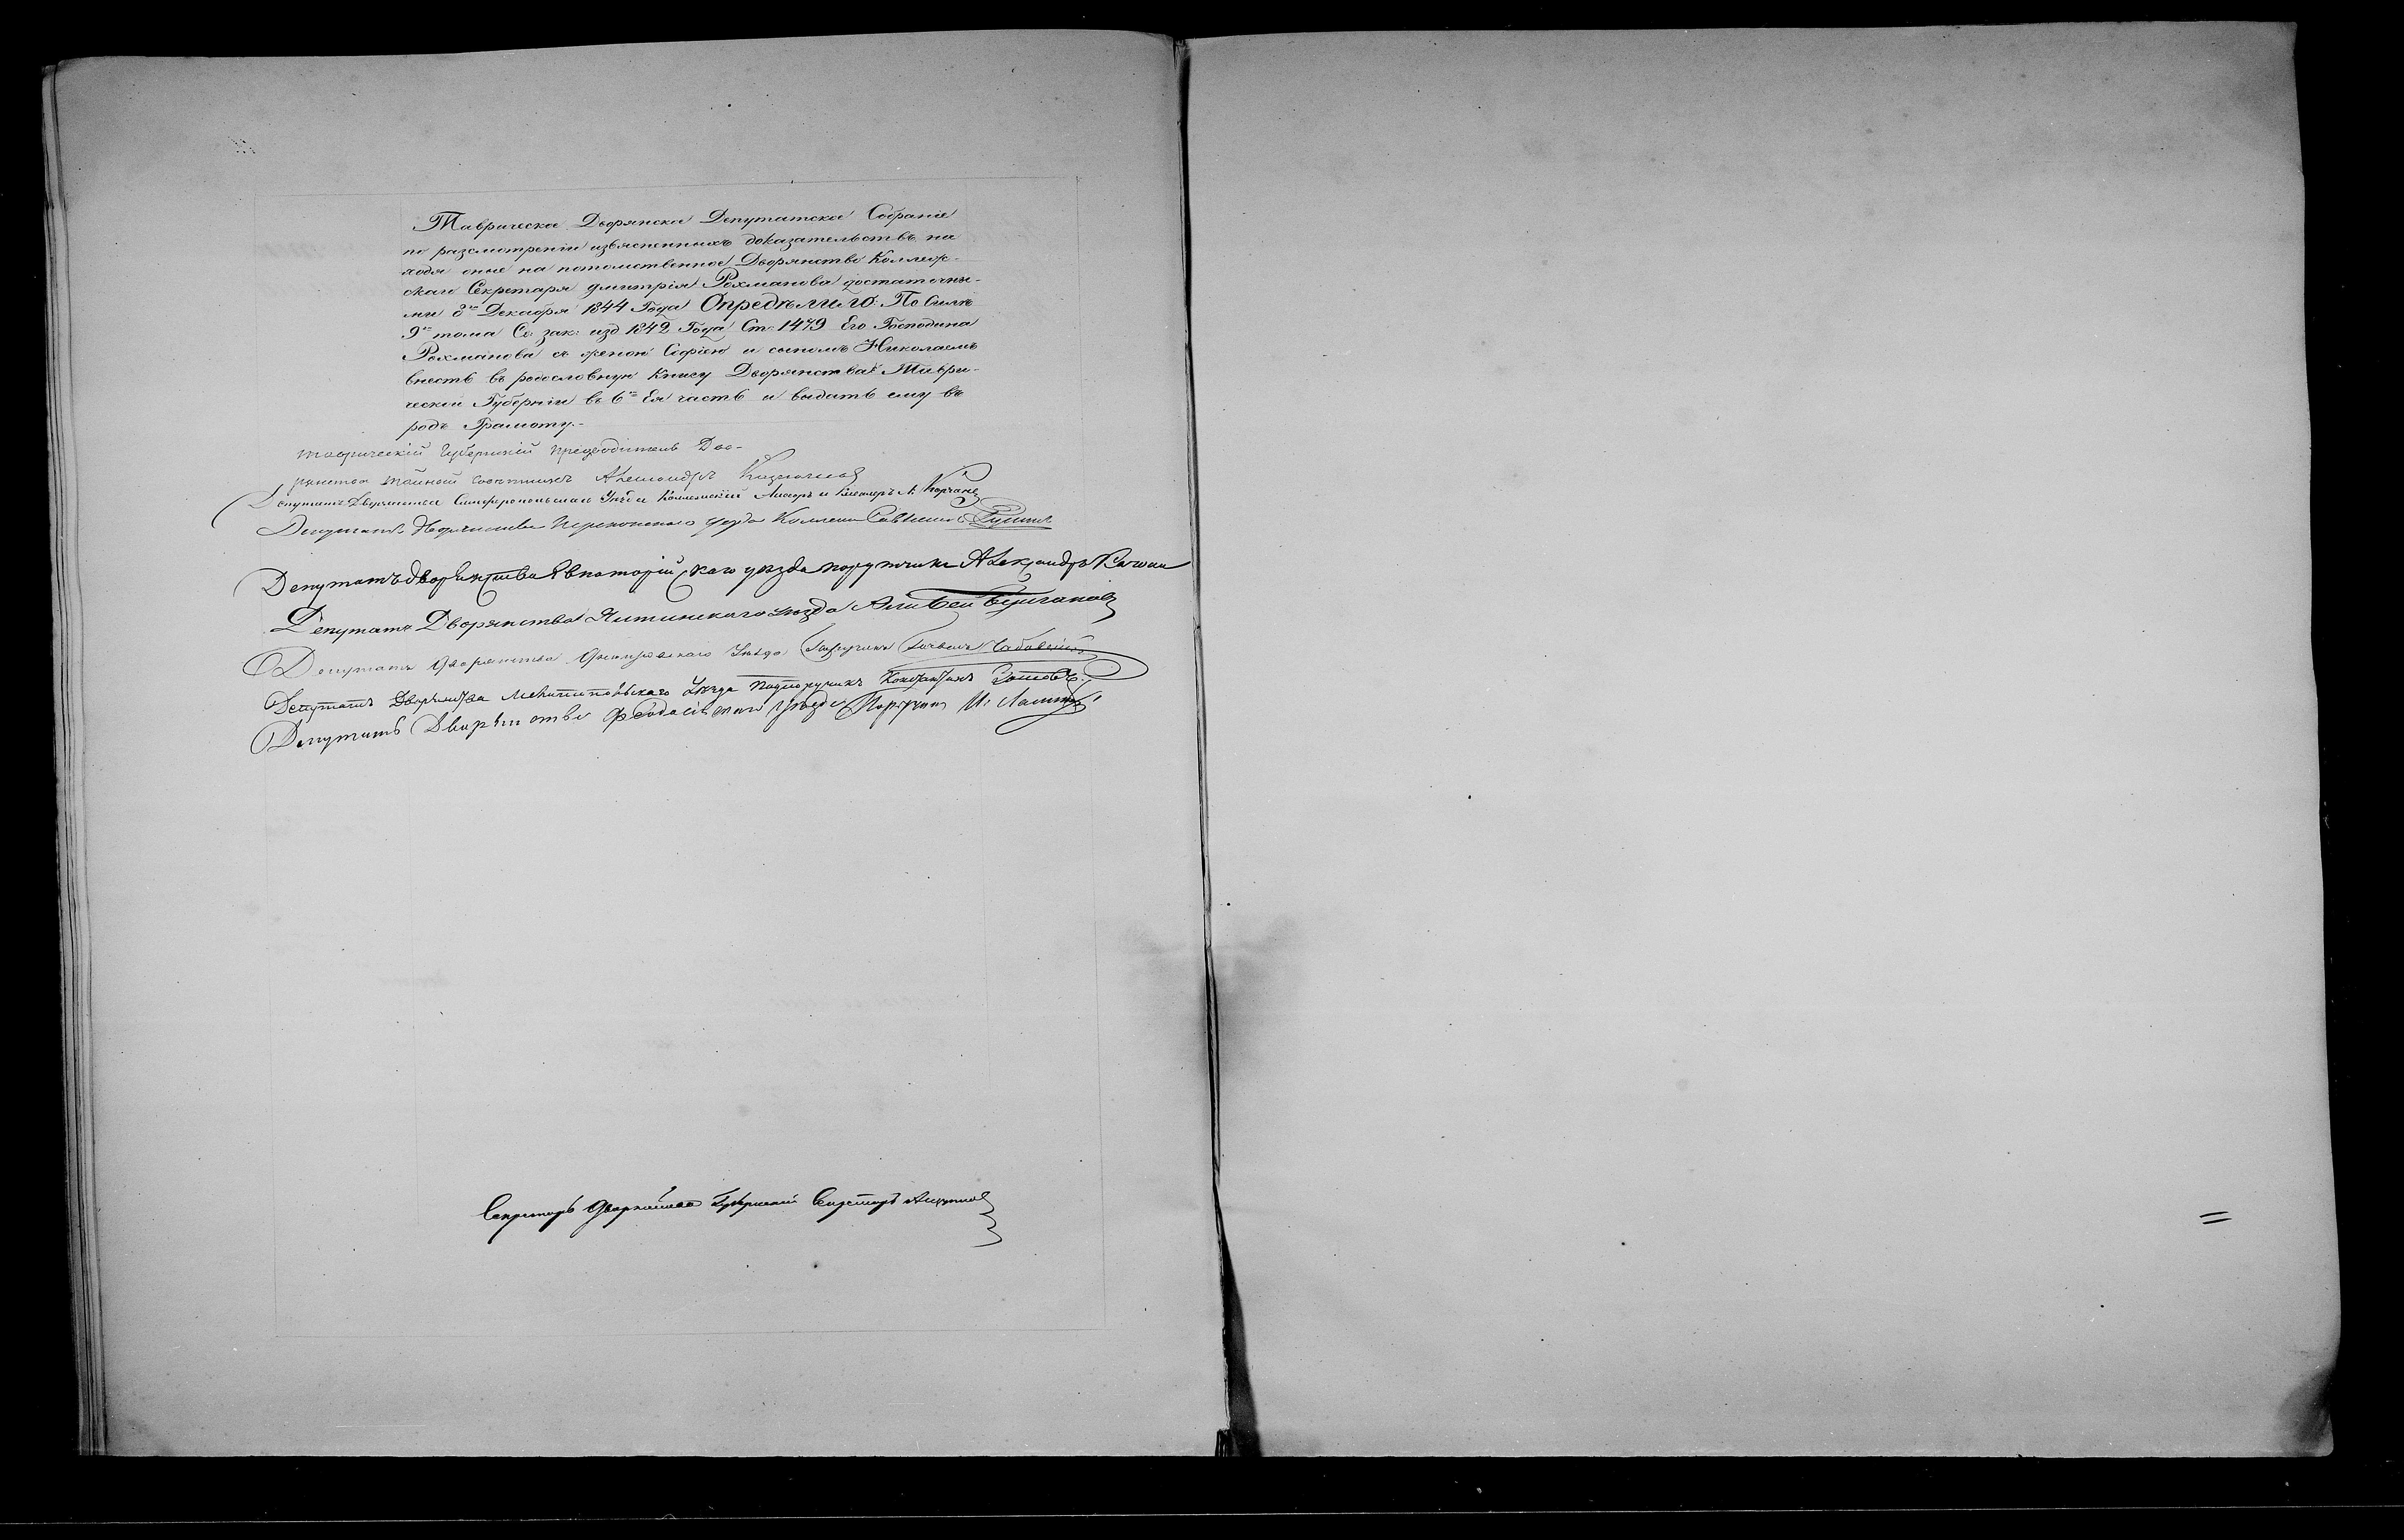 Таврическое Дворянское Депутатское Собраніе
по разсмотреніи изъясненныхъ доказательствъ на
ходя оные на потомственное Дворянство Коллеж-
скаго Секретаря Дмитрія Рохманова достаточны-
ми 8го Декабря 1844 Года Опредѣлило: По Силѣ
9го тома Св. зак: изд 1842 Года Ст: 1479 Его Господина
Рохманова съ женою Софіею и сыномъ Николаемъ
внесть въ родословную Книгу Дворянства Таври-
ческой Губерніи въ 6ю Ея часть и выдать ему въ
родъ Грамоту.-
Таврическій Губернскій предводитель Дво-
рянства тайный Советникъ Александръ Казначеев
Депутатъ Дворянства Симферопольскаго Уезда Коллежскій
Депутатъ Дворянства Перекопскаго уезда Коллеж Советникъ
Депутатъ дворянства Евпаторійскаго уезда порутчикъ Александръ
Депутатъ Дворянства Ялтинскаго Уезда Али Бей Булгаковъ
Депутатъ Дворянства Днепровскаго Уезда Порутчикъ Павелъ
Депутатъ Дворянства Мелитопольскаго Уезда Подпоручикъ Константинъ Зотовъ
Депутатъ Дворянства Феодосійскаго Уезда Поручикъ И.
Секретарь Дворянства Губернскій Секретарь